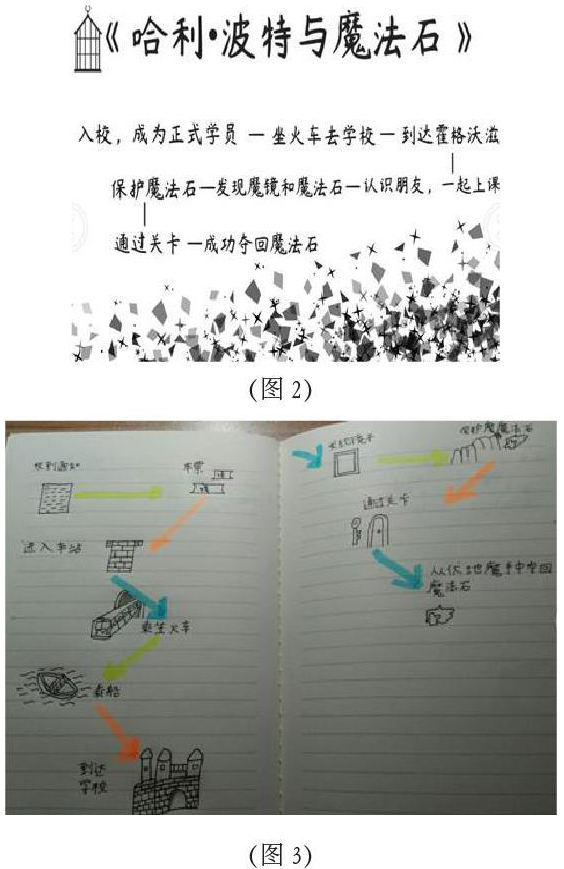 《哈利·波特与魔法石》
入校，成为正式学员 — 坐火车去学校 — 到达霍格沃滋
保护魔法石—发现魔镜和魔法石—认识朋友，一起上课
通过关卡 —成功夺回魔法石
(图 2)
收到通知
车票
进入车站
乘坐火车
乘船
到达
学校
保护魔法石
通过关卡
从伏地魔手中夺回
魔法石
(图 3)